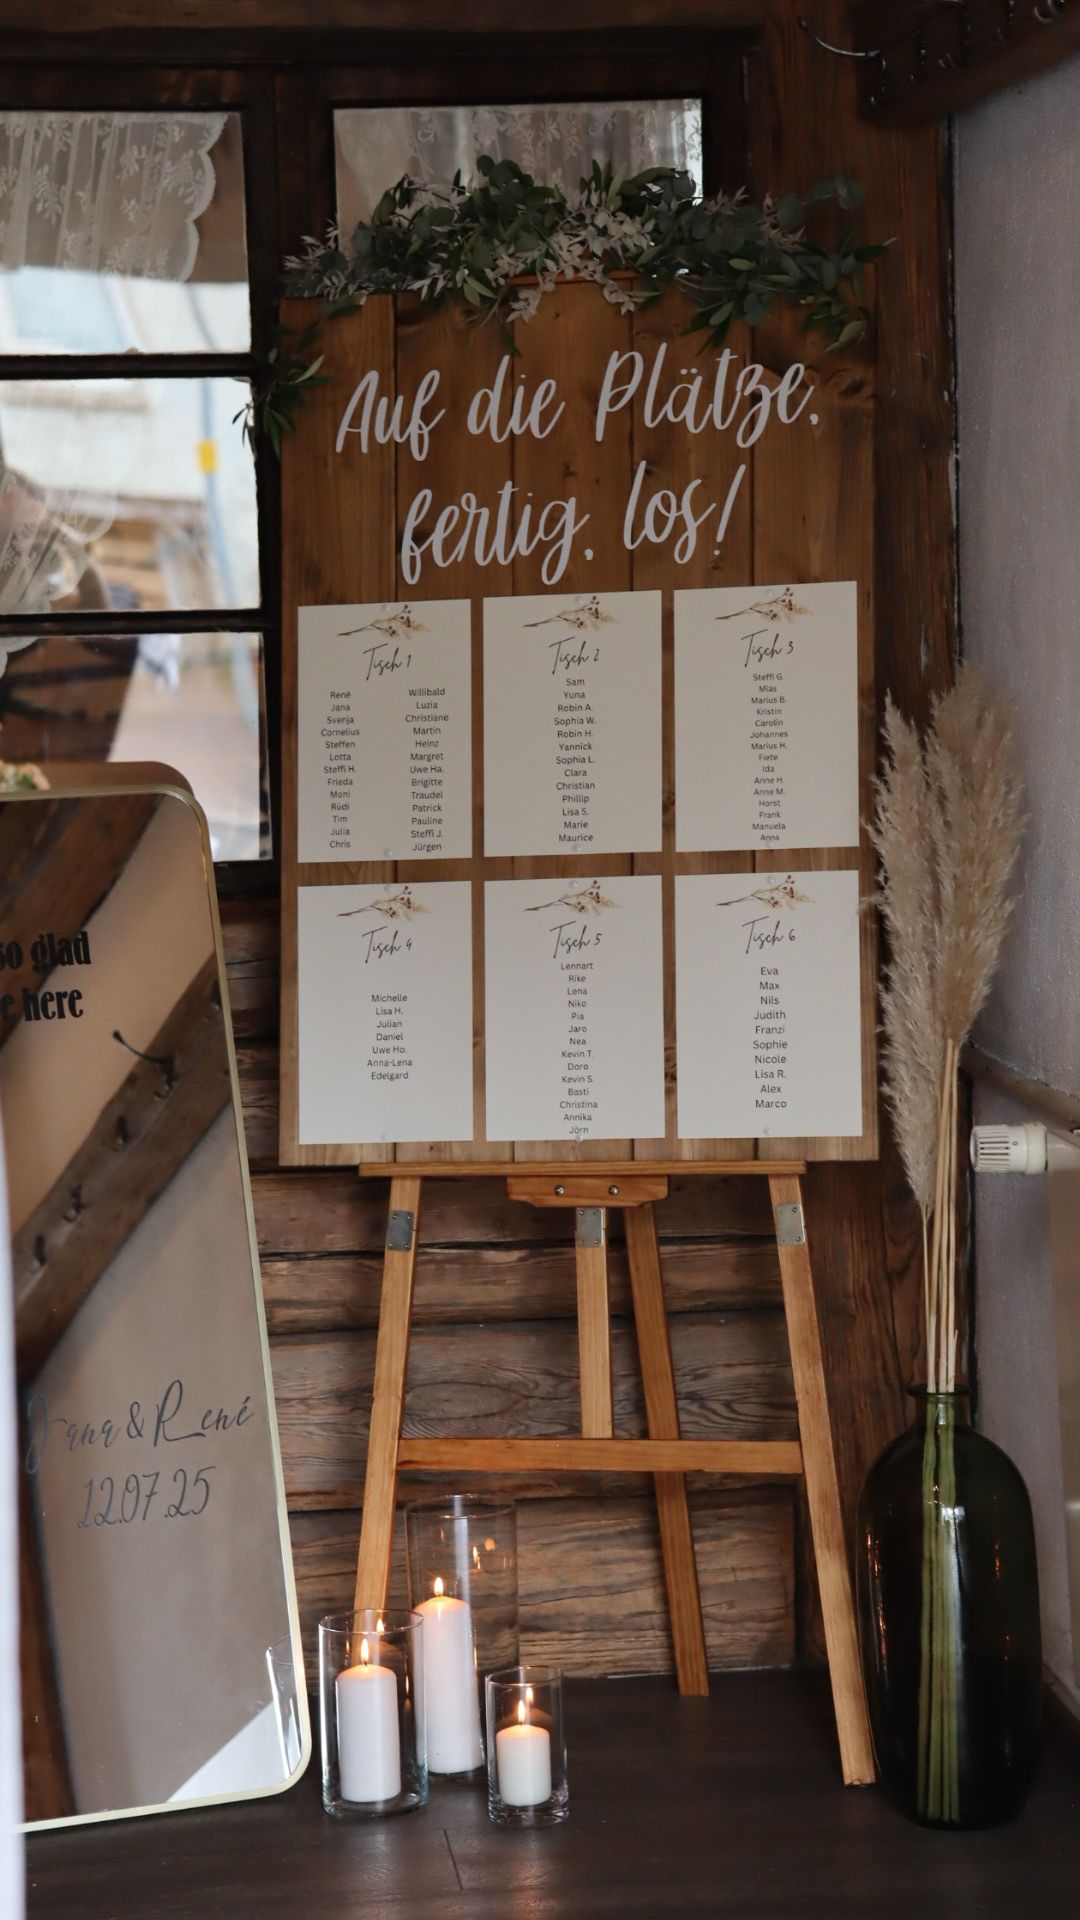 Auf die Plätze,
fertig, los!
Tisch 1
René
Jana
Svenja
Cornelius
Steffen
Lotta
Steffi H.
Frieda
Moni
Rüdi
Tim
Julia
Chris
Willibald
Luzia
Christiane
Martin
Heinz
Margret
Uwe Ha.
Brigitte
Traudel
Patrick
Pauline
Steffi J.
Jürgen
Tisch 2
Sam
Yuna
Robin A.
Sophia W.
Robin H.
Yannick
Sophia L.
Clara
Christian
Phillip
Lisa S.
Marie
Maurice
Tisch 3
Steffi G.
Mias
Marius B.
Kristin
Carolin
Johannes
Marius H.
Fiete
Ida
Anne H.
Anne M.
Horst
Frank
Manuela
Anna
Tisch 4
Michelle
Lisa H.
Julian
Daniel
Uwe Ho.
Anna-Lena
Edelgard
Tisch 5
Lennart
Rike
Lena
Niko
Pia
Jaro
Nea
Kevin T.
Doro
Kevin S.
Basti
Christina
Annika
Jörn
Tisch 6
Eva
Max
Nils
Judith
Franzi
Sophie
Nicole
Lisa R.
Alex
Marco
so glad
e here
Jana & René
12.07.25